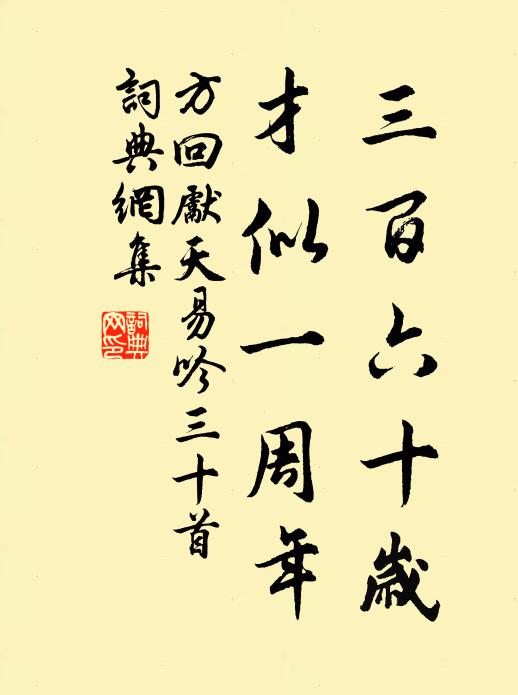 三百六十歲
才似一周年
方回獻天易吟三十首
詞典網集
詞典網印